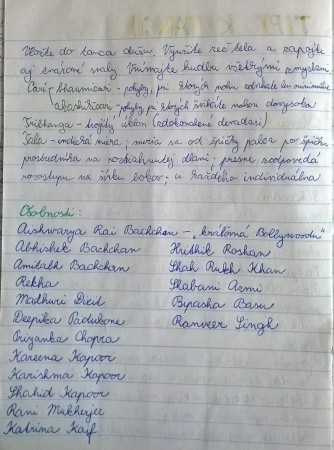 Vložte do tanca dušu. Využite reč tela a zapojte
aj tvárové svaly. Vnímajte hudbu všetkými zmyslami.
Cari bhaumicari - pohyby, pri ktorých nohu odtŕhate len minimálne
akashikari - pohyby pri ktorých švihate nohou dovysoka
Tribhanga - trojitý úklon (zdokonalené devadasi)
Tala - indická miera, meria sa od špičky palca po špičku
prostredníka na roztiahnutej dlani, presne zodpovedá
rozostupu na šírku bokov, u každého individuálna
Osobnosti:
Aishwarya Rai Bachchan - „kráľovná Bollywoodu“
Abhishek Bachchan
Amitabh Bachchan
Rekha
Madhuri Dixit
Deepika Padukone
Priyanka Chopra
Kareena Kapoor
Karishma Kapoor
Shahid Kapoor
Rani Mukherjee
Katrina Kaif
Hrithik Roshan
Shah Rukh Khan
Shabani Azmi
Bipasha Basu
Ranveer Singh